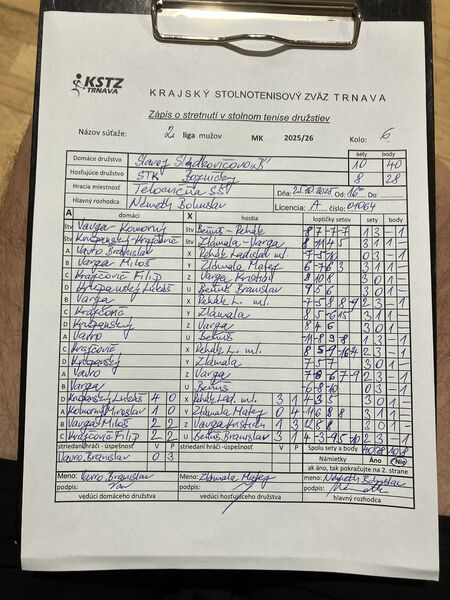 KSTZ
TRNAVA
KRAJSKÝ STOLNOTENISOVÝ ZVÄZ TRNAVA
Zápis o stretnutí v stolnom tenise družstiev
Názov súťaže: 2. liga mužov MK 2025/26 Kolo: 6.
sety body
Domáce družstvo Slavoj Sládkovičovo „B" 10 40
Hosťujúce družstvo STK 8 28
Hracia miestnosť Telocvičňa SŠ Dňa: 25.10.2025 Od
Do
Hlavný rozhodca Németh Bohuslav Licencia: A číslo: 01064
A domáci X hostia loptičky setov sety body
štv Vavga - Komorný štv Beňuš - Rehák 8 7 -7 -7 1 3 - 1
štv Krčpanský - Krajčovič štv Zlámala - Varga 3 1 1
A Vavro Branislav X Rehák Ladislav ml. 0 3 - 1
B Varga Miloš Y Zlámala Matej 6 -7 6 3 3 1 1
C Krajčovič Filip Z Varga Kristián 8 10 8 3 0 1
D Krčpanský Lukáš U Beňuš Branislav 9 5 6 3 0 1
B Varga X Rehák L. ml. 2 3 - 1
C Krajčovič Y Zlámala 3 1 1
D Krčpanský Z Varga 8 4 6 3 0 1
A Vavro U Beňuš 1 3 - 1
C Krajčovič X Rehák L. ml. 2 3 - 1
D Krčpanský Y Zlámala 7 5 7 3 0 1
A Vavro Z Varga 2 3 - 1
B Varga U Beňuš 0 3 - 1
D Krčpanský Lukáš 4 0 X Rehák Lad. ml. 3 1 3 0 1
A Komorný Miroslav 1 0 Y Zlámala Matej 0 4 3 1 1
B Varga Miloš 2 2 Z Varga Kristián 1 3 3 0 1
C Krajčovič Filip 2 2 U Beňuš Branislav 3 1 2 3 - 1
striedaní hráči - úspešnosť V P striedaní hráči - úspešnosť V P Spolu sety a body 40:28 10:8
Vavro Branislav 0 3 Námietky Áno Nie
ak áno, tak pokračujte na 2. strane
Meno: Vavro Branislav Meno: Zlámala Matej Meno: Németh Bohuslav
podpis: podpis: podpis:
vedúci domáceho družstva vedúci hosťujúceho družstva hlavný rozhodca